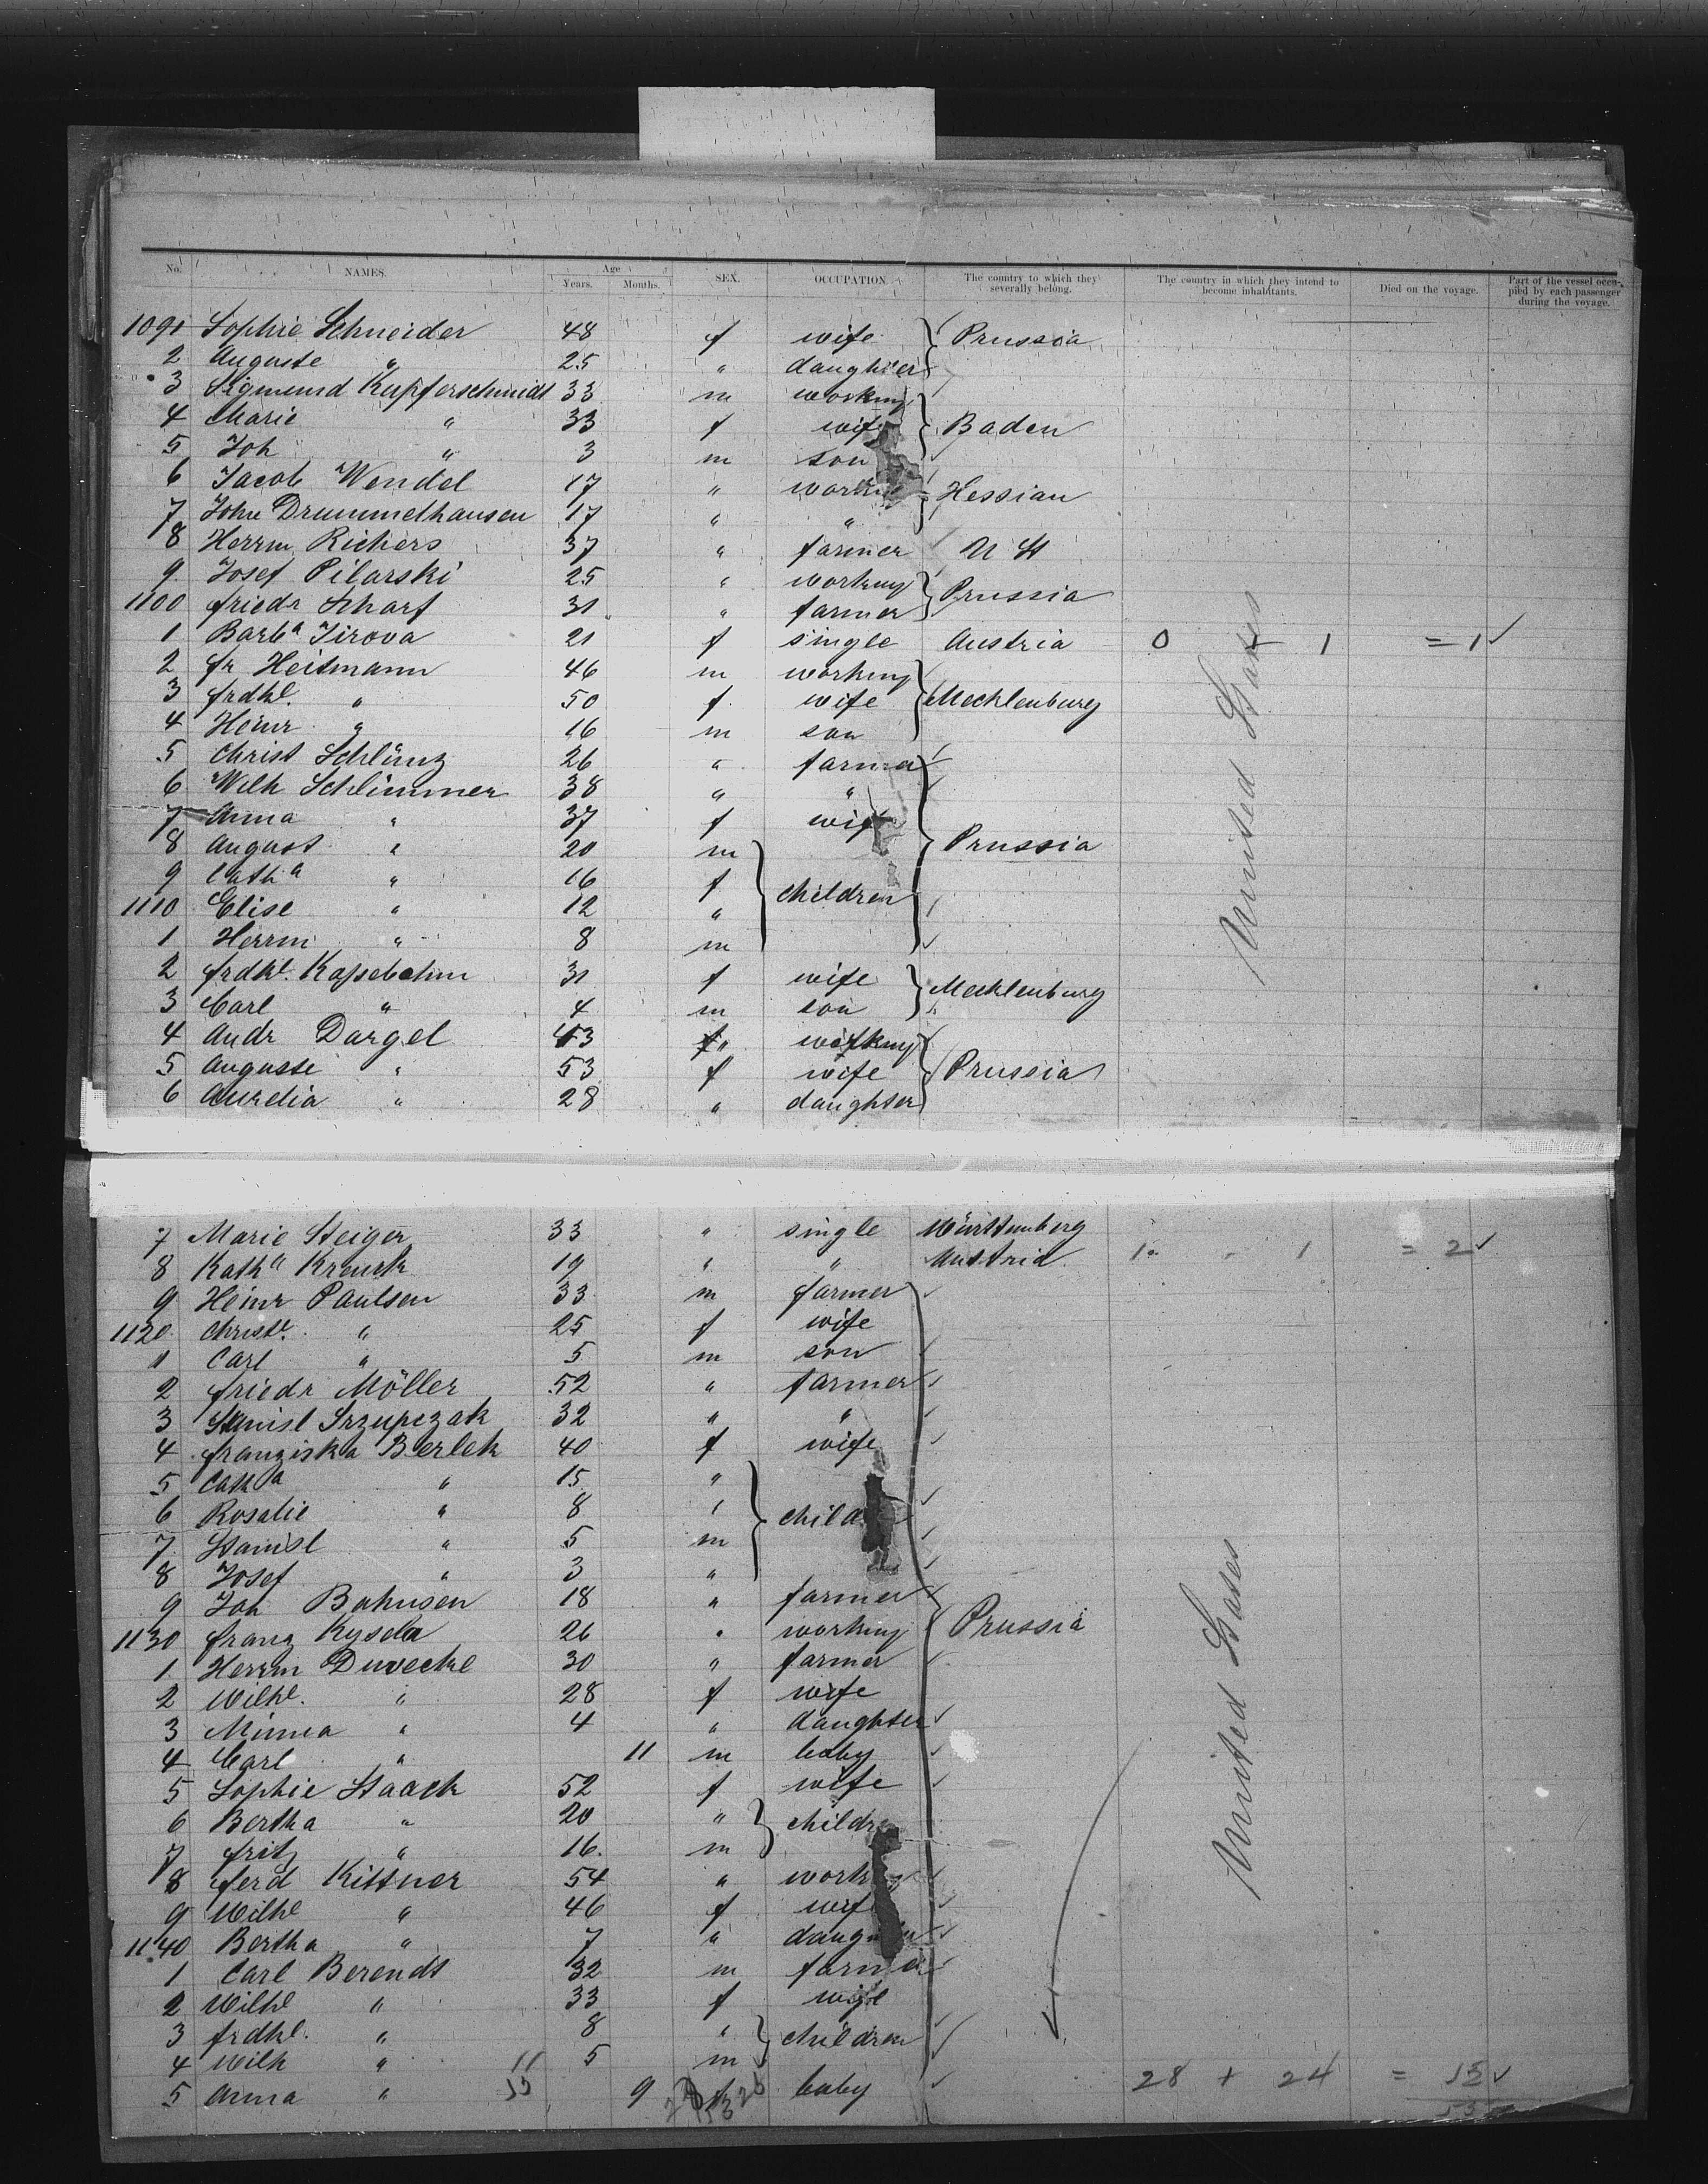 No. NAMES. Age Years. Months. SEX. OCCUPATION The country to which they severally belong. The country in which they intend to become inhabitants. Died on the voyage. Part of the vessel occupied by each passenger during the voyage.
1091 Sophie Schneider 48 f wife Prussia
2 Auguste " 25 " daughter
3 Sigmund Kupferschmidt 33 m working
4 Marie " 33 f wife Baden
5 Joh " 3 m son
6 Jacob Wendel 17 " working Hessian
7 John Drummelhausen 17 " "
8 Herrm Richers 37 " farmer U St
9 Josef Pilarski 25 " working Prussia
1100 Friedr Scharf 31 " farmer
1 Barba Jirova 21 f single Austria 0 + 1 = 1 ✓
2 Fr Heitmann 46 m working
3 Frdke. " 50 f. wife Mecklenburg
4 Heinr " 16 m son
5 Christ Schlünz 26 " farmer
6 Wilh Schlimmer 38 " "
7 Anna " 37 f wife
8 August " 20 m Prussia
9 Catha " 16 f children
1110 Elise " 12 "
1 Herrm " 8 m
2 Frdke. 31 f wife Mecklenburg
3 Carl " 4 m son
4 Andr Dargel 43 " working
5 Auguste " 53 f wife Prussia
6 Aurelia " 28 " daughter
United States
7 Marie Steiger 33 " single Württemberg
8 Katha 19 " " Austria 1 " 1 = 2 ✓
9 Heinr Paulsen 33 m farmer
1120 Christe. " 25 f wife
1 Carl " 5 m son
2 Friedr Möller 52 " farmer
3 Stanisl 32 " "
4 Franziska Berlek 40 f wife
5 Catha " 15 "
6 Rosalie " 8 " child
7 Stanisl " 5 m
8 Josef " 3 "
9 Joh Bahnsen 18 " farmer
1130 Franz Kysela 26 " working Prussia
1 Herrm Duvecke 30 " farmer
2 Wilhe. " 28 f wife
3 Minna " 4 " daughter
4 Carl " 11 m baby
5 Sophie Staack 52 f wife
6 Bertha " 20 " childr
7 Fritz " 16. m
8 Ferd Kittner 54 " working
9 Wilhe " 46 f wife
1140 Bertha " 7 " daughter
1 Carl Berendt 32 m farmer
2 Wilhe " 33 f wife
3 Frdke. " 8 " children
4 Wilh " 5 m
5 Anna " 9 f baby
United States
28 + 24 =